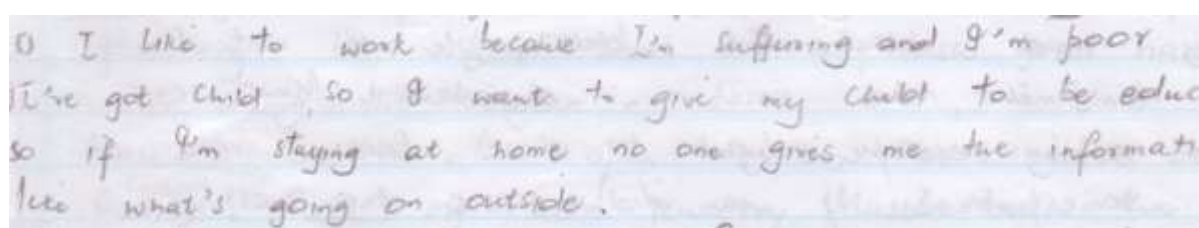 1) I like to work because I'm suffering and I'm poor
I've got child, so I want to give my child to be educ
so if I'm staying at home no one gives me the informati
like what's going on outside.